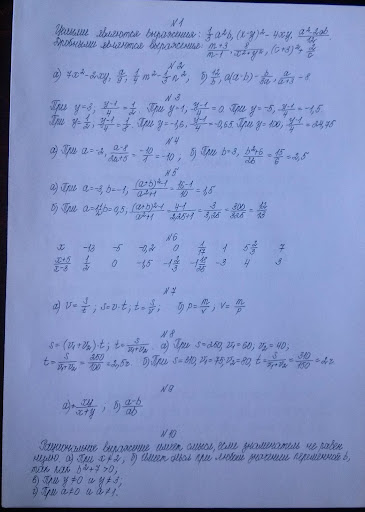 №1
Целыми являются выражения: 1/3 a²b, (x-y)²-4xy, 
Дробными являются выражения: (m+3)/(m-1), (c+3)²+
№2
а) 7x²-2xy, 1/3 m²-1/3 n², б)
№3
При y=3, (y-1)/4=1/2. При y=1, (y-1)/4=0. При y=-5, (y-1)/4=-1,5.
При y=1/2, (y-1)/4=-1/8. При y=-1,6, (y-1)/4=-0,65. При y=100, (y-1)/4=24,75
№4
а) При a=-2, (a-8)/(2a+5)=-10/1=-10, б) При b=3, (b²+6)/2b=15/6=2,5
№5
а) При a=-3, b=-1, ((a+b)²-1)/(a²+1)=(16-1)/10=1,5
б) При a=1½ b=0,5, ((a+b)²-1)/(a²+1)=(4-1)/(2,25+1)=3/3,25=300/325=12/13
№6
x -13 -5 -0,2 0 1/17 1 5 2/3 7
(x+5)/(x-3) 1/2 0 -1,5 -1 2/3 -3 4 3
№7
а) v=s/t, s=v·t, t=s/v, б) p=m/v, v=m/p
№8
s=(v₁+v₂)·t, t=s/(v₁+v₂). а) При s=250, v₁=60, v₂=40,
t=s/(v₁+v₂)=250/100=2,5ч. б) При s=310, v₁=75, v₂=80, t=s/(v₁+v₂)=310/155=2ч
№9
а) xy/(x+y), б) (a-b)/ab
№10
Рациональное выражение имеет смысл, если знаменатель не равен
нулю. а) При x≠2, б) Имеет смысл при любом значении переменной b,
так как b²+7>0,
в) При y≠0 и y≠3,
г) При a≠0 и a≠1.